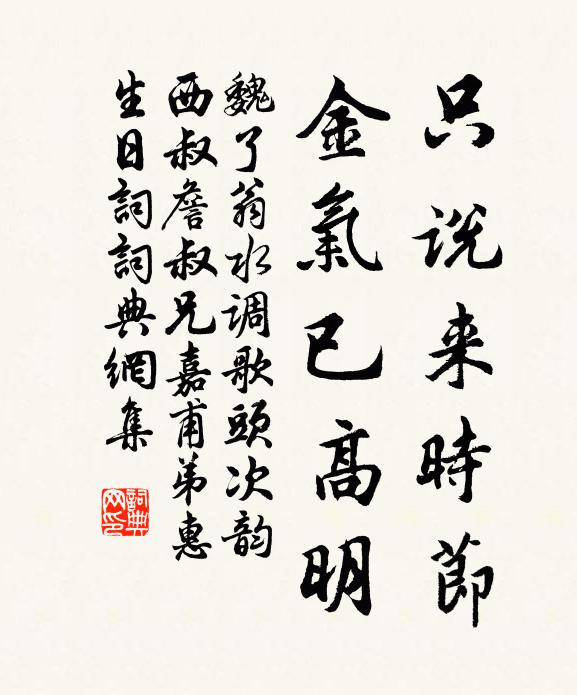 只说来時節
金氣已高明
魏了翁水调歌頭次韵
西叔詹叔兄嘉甫弟惠
生日詞詞典網集
詞典
网印